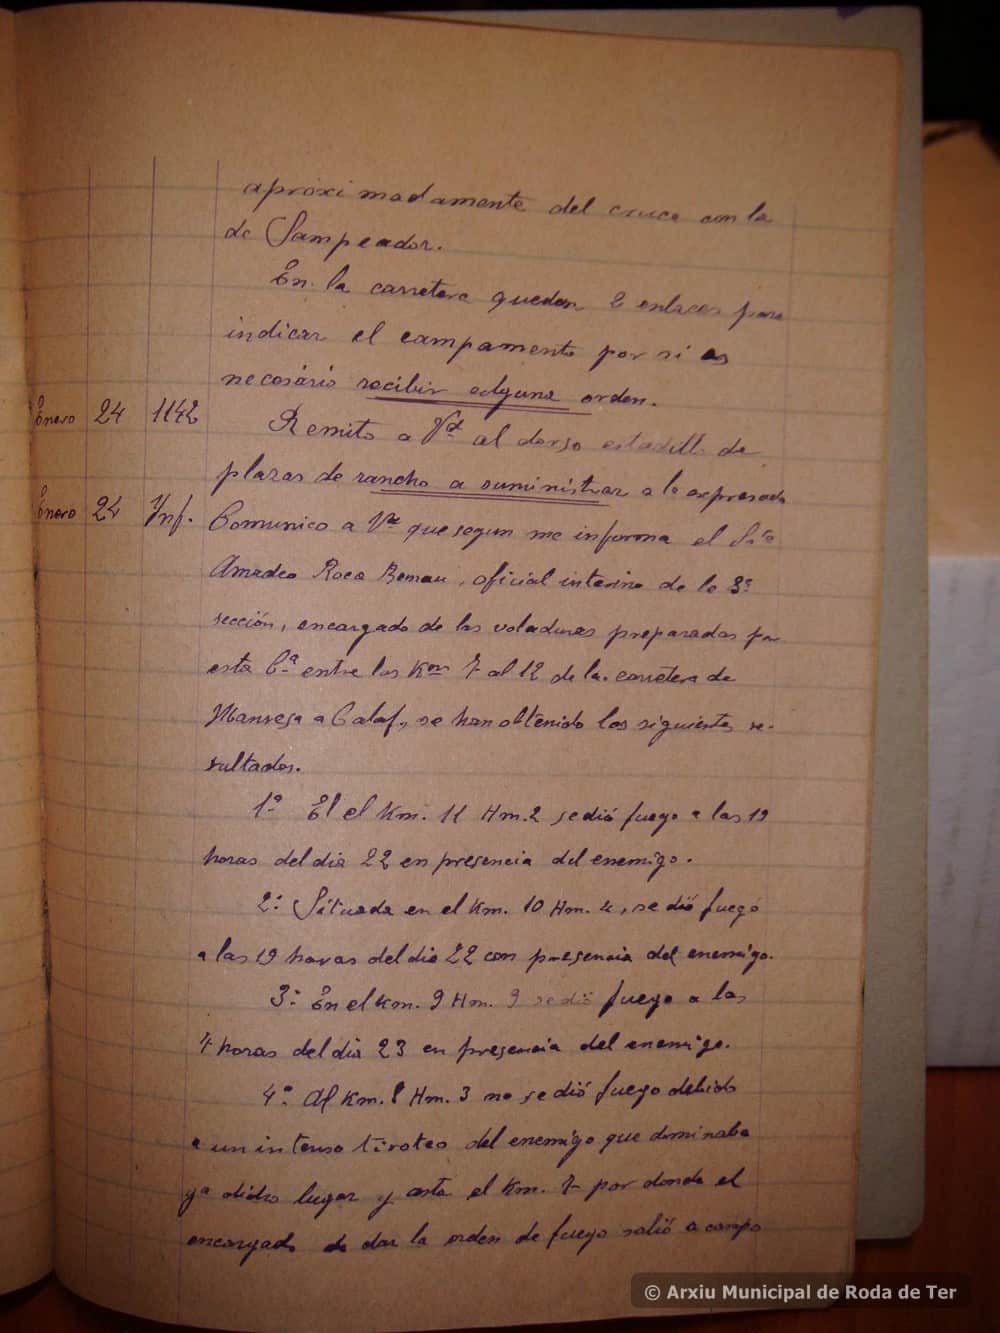 aproximadamente del cruce con la
de Sampeador.
En la carretera quedan 2 enlaces para
indicar el campamento por si es
necesário recibir alguna orden.
Enero 24 1142 Remito a Vd al dorso estadillo de
plazas de rancho a suministrar a la expresada
Enero 24 Inf. Comunico a Vd que segun me informa el Sto
Amadeo Roca Bernau, oficial interino de la 3ª
sección, encargado de las voladuras preparadas por
esta Cª entre los Km 7 al 12 de la carretera de
Manresa a Calaf, se han obtenido los siguientes re-
sultados.
1º El el Km. 11 Hm. 2 se dió fuego a las 19
horas del dia 22 en presencia del enemigo.
2º Situada en el Km. 10 Hm. 4, se dió fuego
a las 19 horas del dia 22 con presencia del enemigo.
3º En el Km. 9 Hm. 9 se dió fuego a las
4 horas del dia 23 en presencia del enemigo.
4º Al Km. 8 Hm. 3 no se dió fuego debido
a un intenso tiroteo del enemigo que dominaba
ya didho lugar y asta el Km. 7 por donde el
encargado de dar la orden de fuego salió a campo
© Arxiu Municipal de Roda de Ter